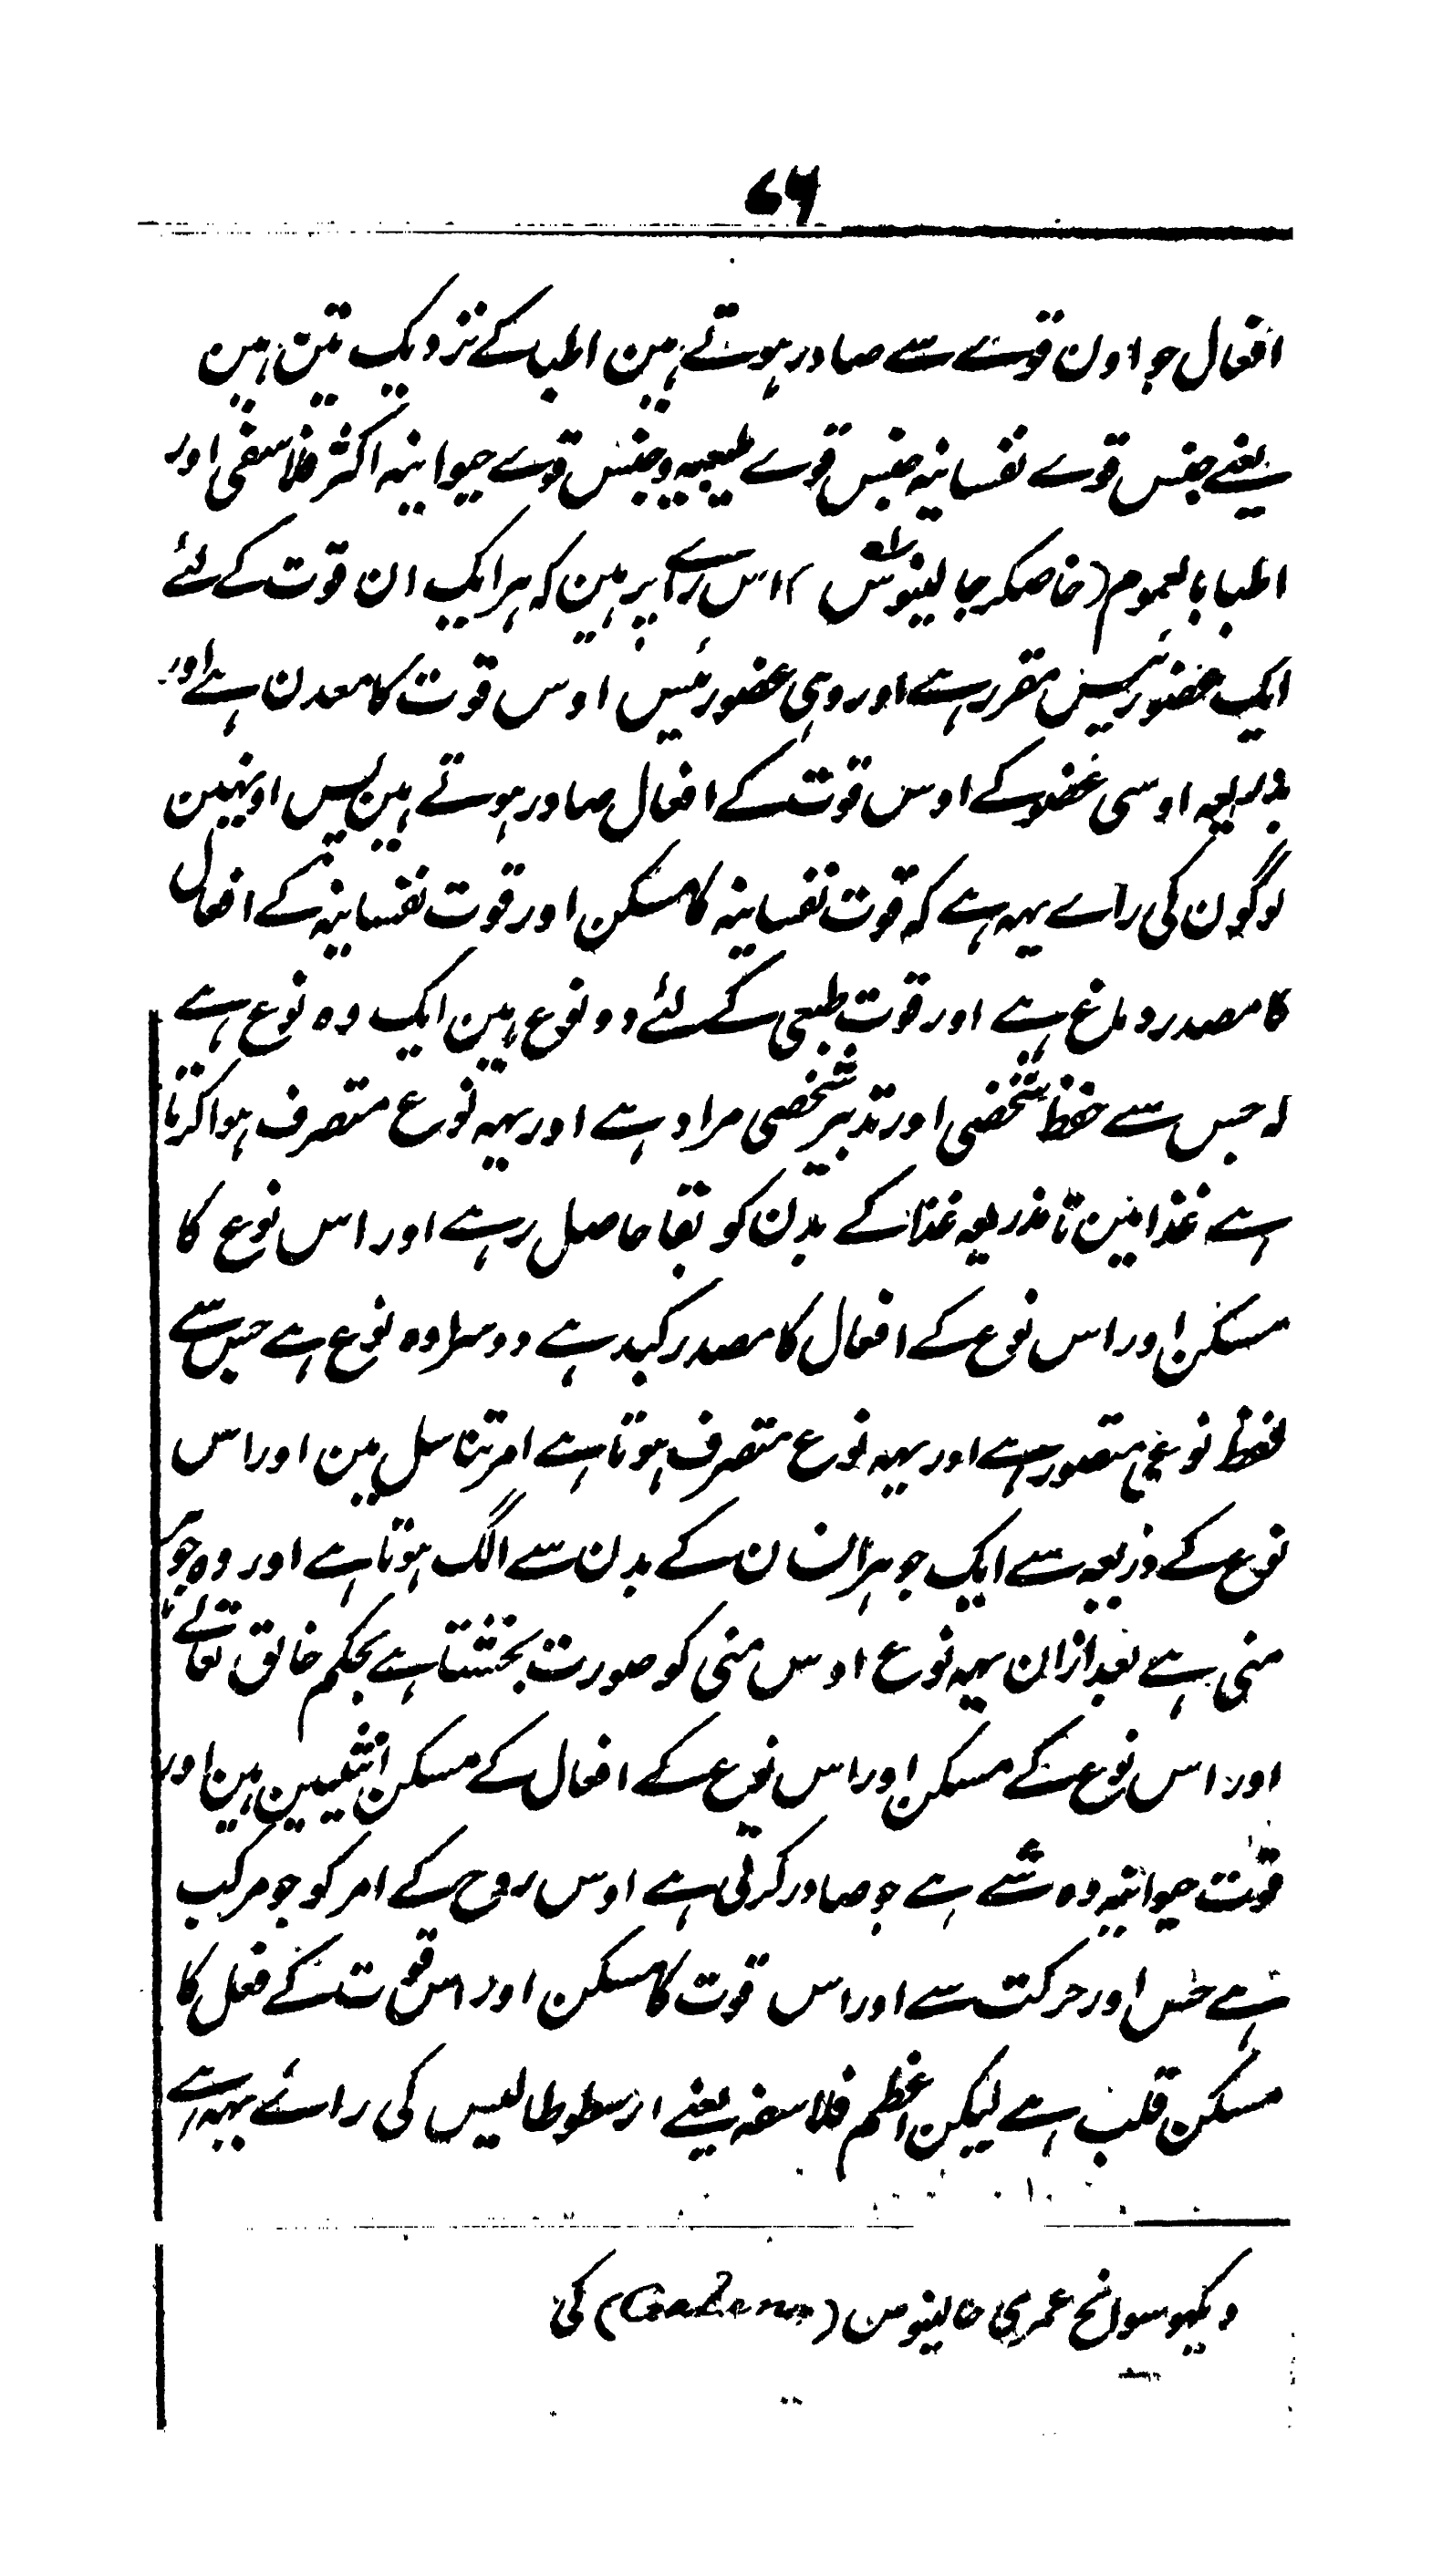 ۷۶
افعال جو اون قوے سے صادر ہوتے ہین اطبا کے نزدیک تین ہین
یعنے جنس قوے نفسانیہ جنس قوے طبیعیہ و جنس قوے حیوانیہ اکثر فلاسفی اور
اطبا بالعموم (خاصکر جالینوس) اس راے پر ہین کہ ہر ایک ان قوت کے لئے
ایک عضو رئیس مقرر ہے اور وہی عضو رئیس اوس قوت کا معدن ہے اور
بذریعہ اوسی عضو کے اوس قوت کے افعال صادر ہوتے ہین پس اونہین
لوگون کی راے یہہ ہے کہ قوت نفسانیہ کا مسکن اور قوت نفسانیہ کے افعال
کا مصدر دماغ ہے اور قوت طبعی کے لئے دو نوع ہین ایک وہ نوع ہے
کہ جس سے حفظ شخضی اور تدبیر شخصی مراد ہے اور یہہ نوع متصرف ہوا کرتا
ہے غذا مین تا بذریعہ غذا کے بدن کو بقا حاصل رہے اور اس نوع کا
مسکن اور اس نوع کے افعال کا مصدر کبد ہے دوسرا وہ نوع ہے جس سے
حفظ نوعی متصور ہے اور یہہ نوع متصرف ہوتا ہے امر تناسل مین اور اس
نوع کے ذریعہ سے ایک جوہر انسان کے بدن سے الگ ہوتا ہے اور وہ جوہر
منی ہے بعد ازان یہہ نوع اوس منی کو صورت بخشتا ہے بحکم خالق تعالے
اور اس نوع کے مسکن اور اس نوع کے افعال کے مسکن انثیین ہین اور
قوت حیوانیہ وہ شے ہے جو صادر کرتی ہے اوس روح کے امر کو جو مرکب
ہے حس اور حرکت سے اور اس قوت کا مسکن اور اس قوت کے فعل کا
مسکن قلب ہے لیکن اعظم فلاسفہ یعنے ارسطوطالیس کی رائے یہہ ہے
دیکہو سوانح عمری جالینوس (Galen) کی